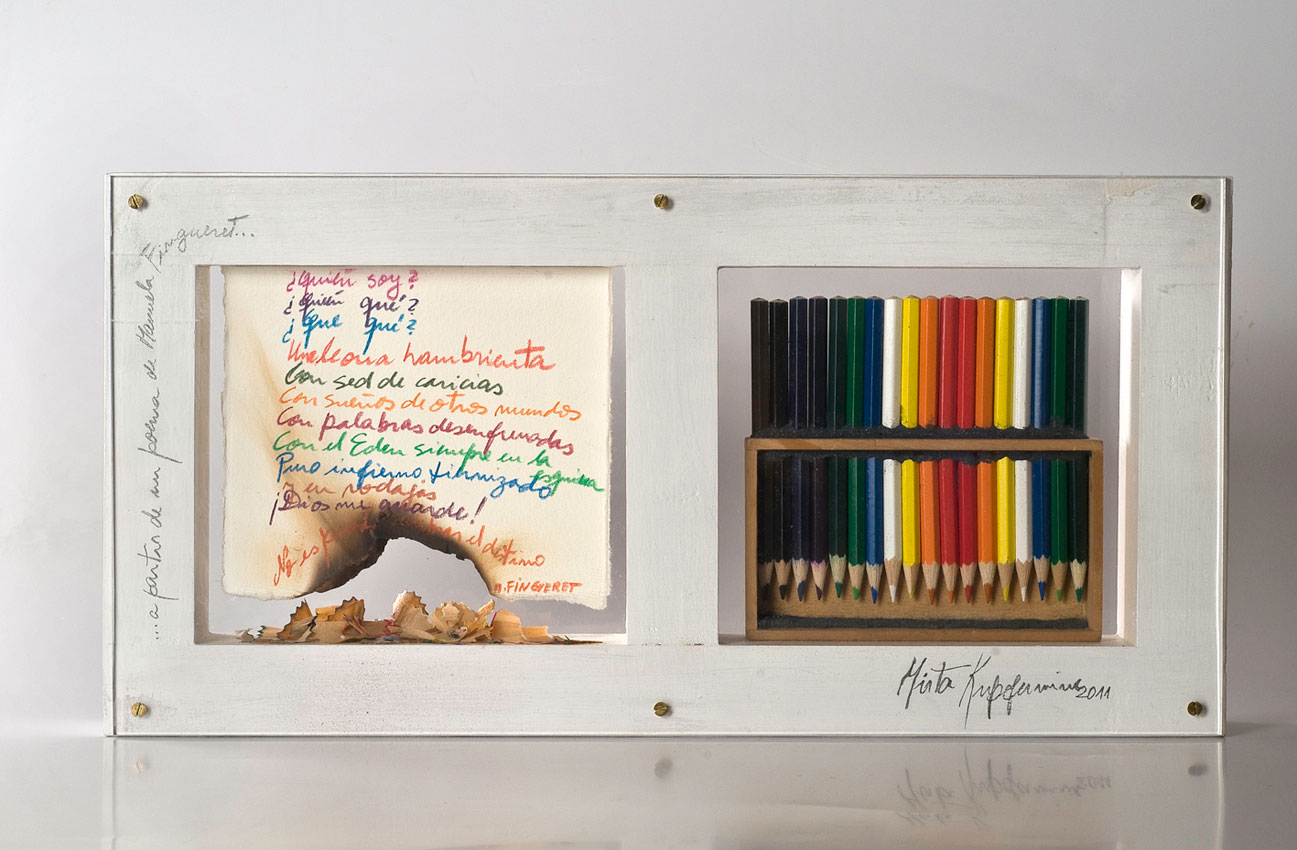 ...a partir de un poema de Manuela Fingueret...
¿quién soy?
¿quién qué?
¿que qué?
Una leona hambrienta
Con sed de caricias
Con sueños de otros mundos
Con palabras desenfrenadas
Con el Eden siempre en la
esquina
Puro infierno
y en rodajas
¡Dios me guarde!
No es el destino
M. FINGUERET
Mirta Kupferminc 2011